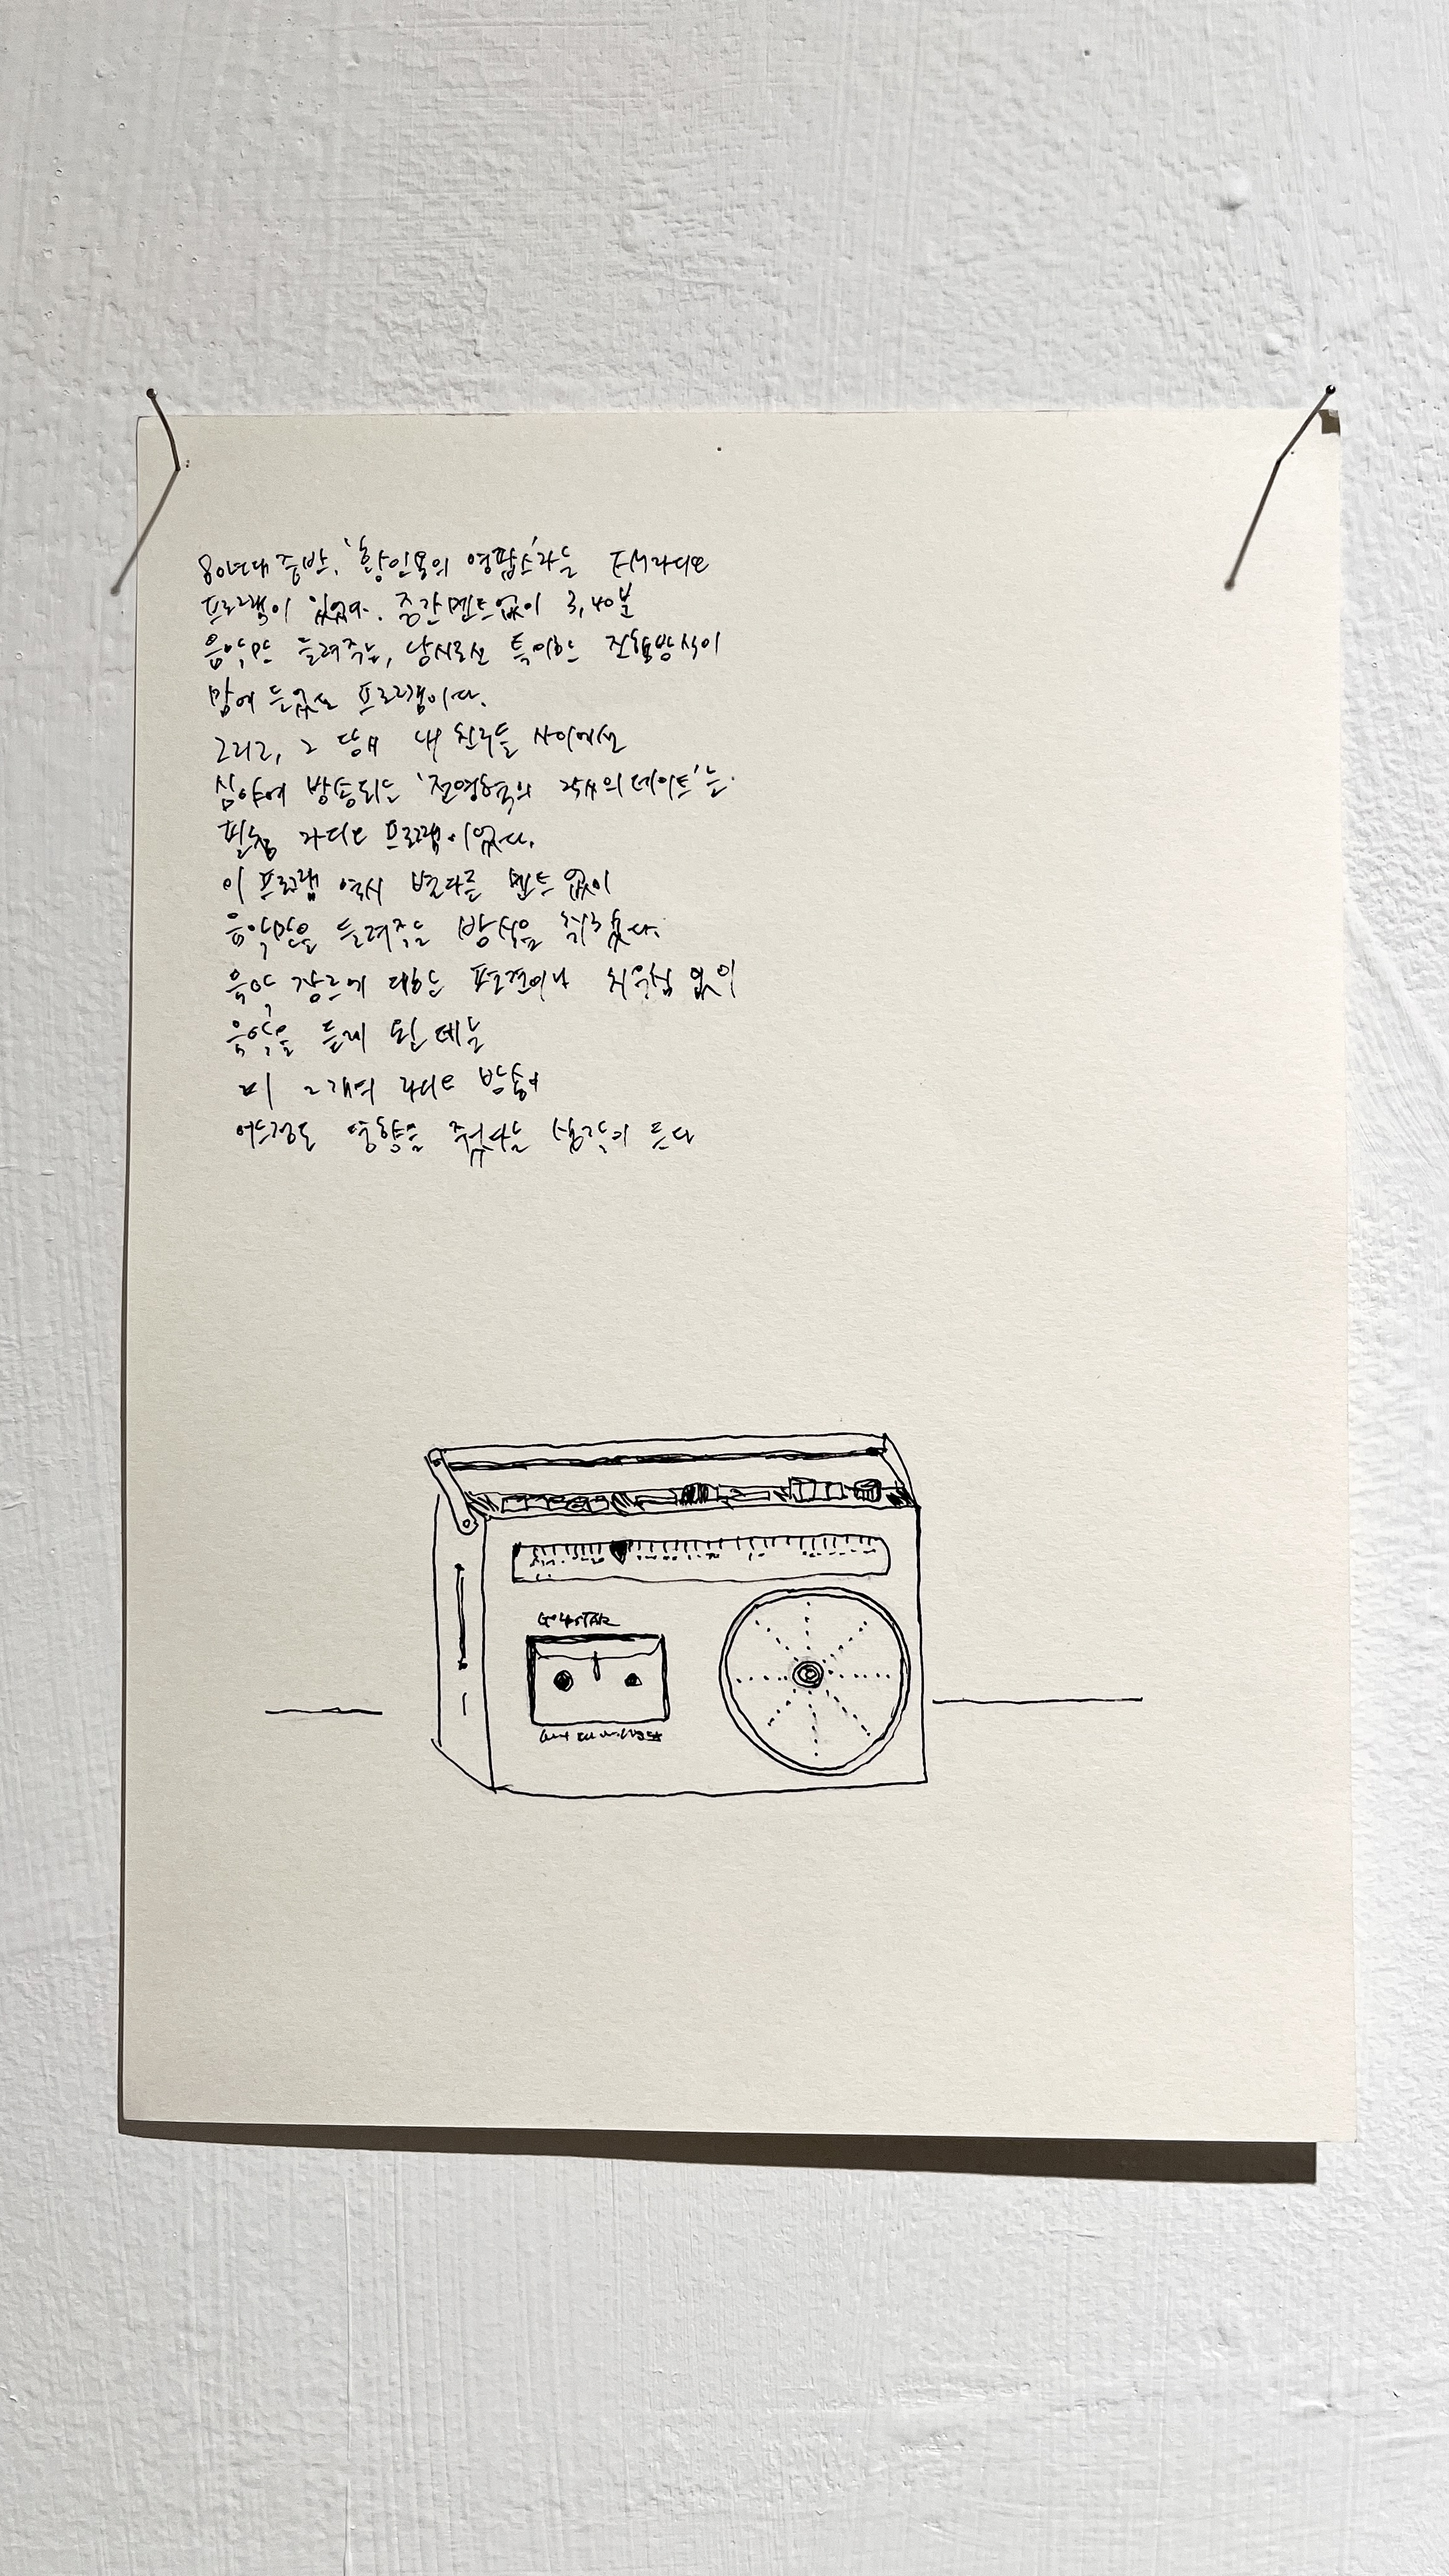 80년대 중반, '황인용의 영팝스'라는 FM라디오
프로그램이 있었다. 중간멘트없이 3,40분
음악만 들려주는, 당시로선 특이한 진행방식이
맘에 들었던 프로그램이다.
그리고, 그 당시 내 친구들 사이에선
심야에 방송되는 '전영혁의 25시의 데이트'는
필청 라디오 프로그램이었다.
이 프로그램 역시 별다른 멘트 없이
음악만을 들려주는 방식을 취했다.
음악 장르에 대한 편견이나 치우침 없이
음악을 듣게 된데는
이 2개의 라디오 방송이
어느정도 영향을 줬다는 생각이 든다
GOLDSTAR